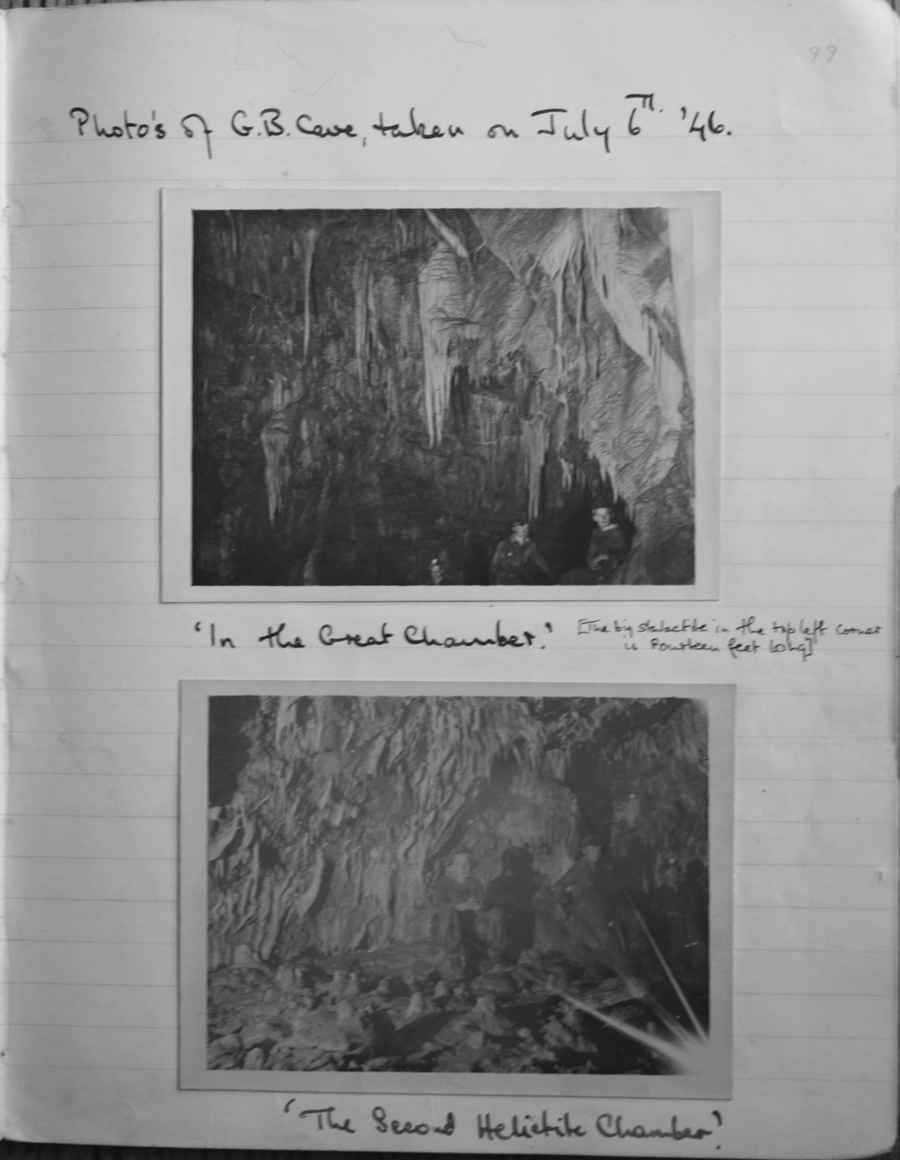 99
Photo's of G.B. Cave, taken on July 6TH. '46.
'In the Great Chamber.'
[The big stalactite in the top left corner
is fourteen feet long]
'The Second Helictite Chamber.'